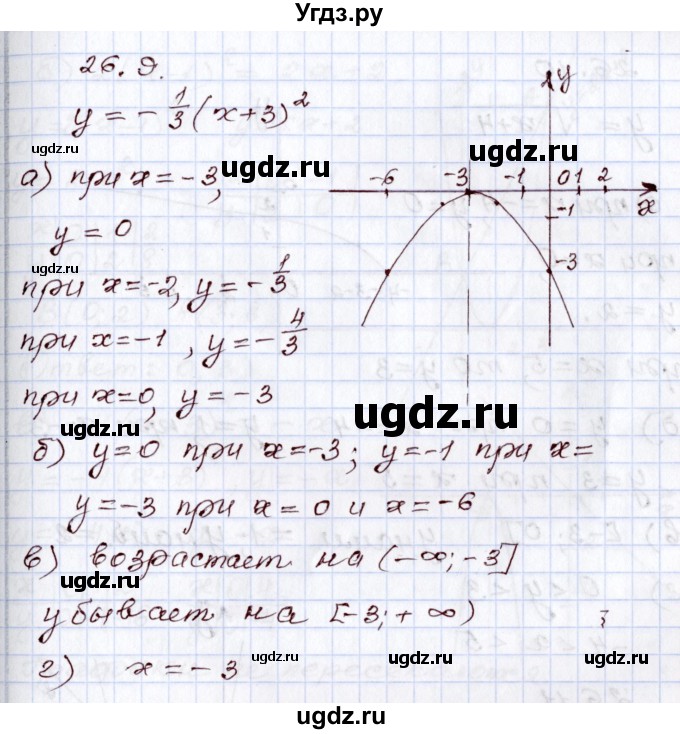 Угдз.ру
26.9.
y = - 1/3 (x+3)²
а) при x = -3,
y = 0
при x=-2, y = - 1/3
при x=-1, y = - 4/3
при x=0, y = -3
б) y=0 при x=-3; y=-1 при x=
y=-3 при x=0 и x=-6
в) возрастает на (-∞; -3]
убывает на [-3; +∞)
г) x = -3
y
-6 -3 -1 0 1 2
x
-1
-3
ugdz.ru
ugdz.ru
ugdz.ru
ugdz.ru
ugdz.ru
ugdz.ru
ugdz.ru
ugdz.ru
ugdz.ru
ugdz.ru
ugdz.ru
ugdz.ru
ugdz.ru
ugdz.ru